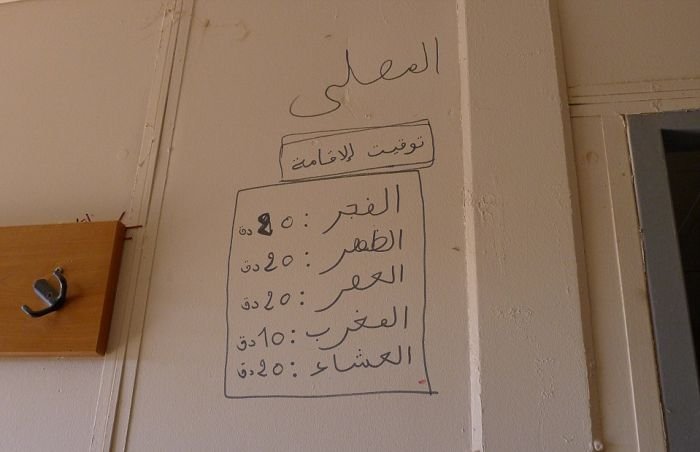 المصلى
توقيت الاقامة
الفجر : 20 دق
الظهر : 20 دق
العصر : 20 دق
المغرب : 10 دق
العشاء : 20 دق